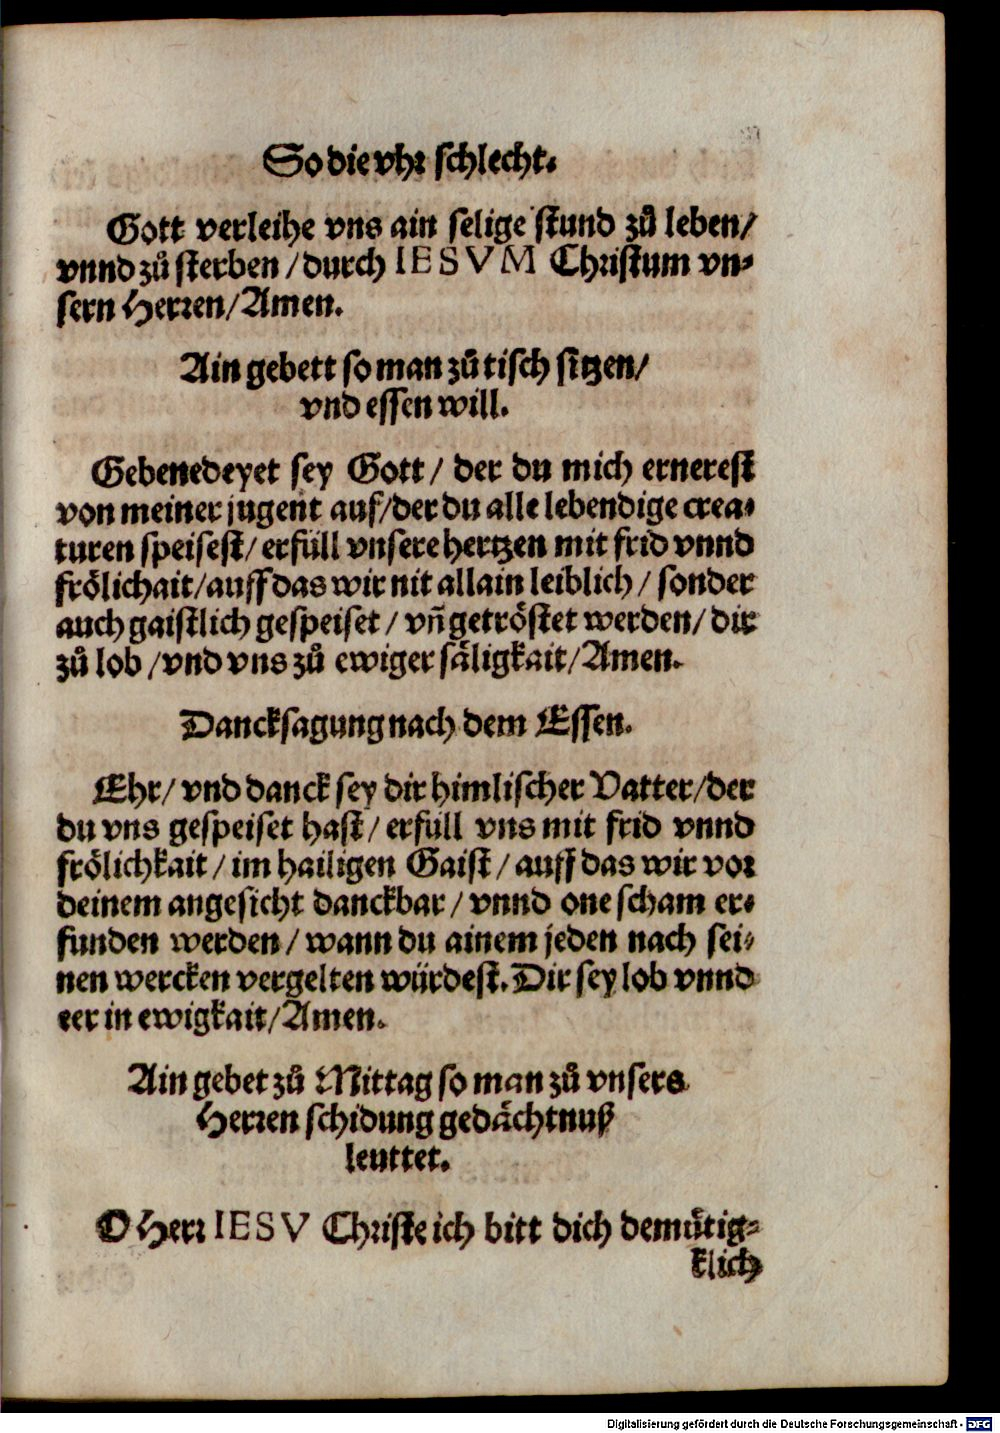 So die vhr schlecht.
Gott verleihe vns ain selige stund zů leben/
vnnd zů sterben / durch IESVM Christum vn-
sern Herren/Amen.
Ain gebett so man zů tisch sitzen/
vnd essen will.
Gebenedeyet sey Gott/ der du mich ernerest
von meiner jugent auf/der du alle lebendige crea-
turen speisest/ erfüll vnsere hertzen mit frid vnnd
frölichait/auff das wir nit allain leiblich/ sonder
auch gaistlich gespeiset / vñ getröstet werden/ dir
zů lob /vnd vns zů ewiger säligkait/Amen.
Dancksagung nach dem Essen.
Ehr/ vnd danck sey dir himlischer Vatter/der
du vns gespeiset hast/ erfüll vns mit frid vnnd
frölichkait / im hailigen Gaist / auff das wir vor
deinem angesicht danckbar / vnnd one scham er-
funden werden / wann du ainem jeden nach sei-
nen wercken vergelten würdest. Dir sey lob vnnd
eer in ewigkait/Amen.
Ain gebet zů Mittag so man zů vnsers
Herren schidung gedächtnuß
leuttet.
O Herr IESV Christe ich bitt dich demůtig-
klich
Digitalisierung gefördert durch die Deutsche Forschungsgemeinschaft - DFG